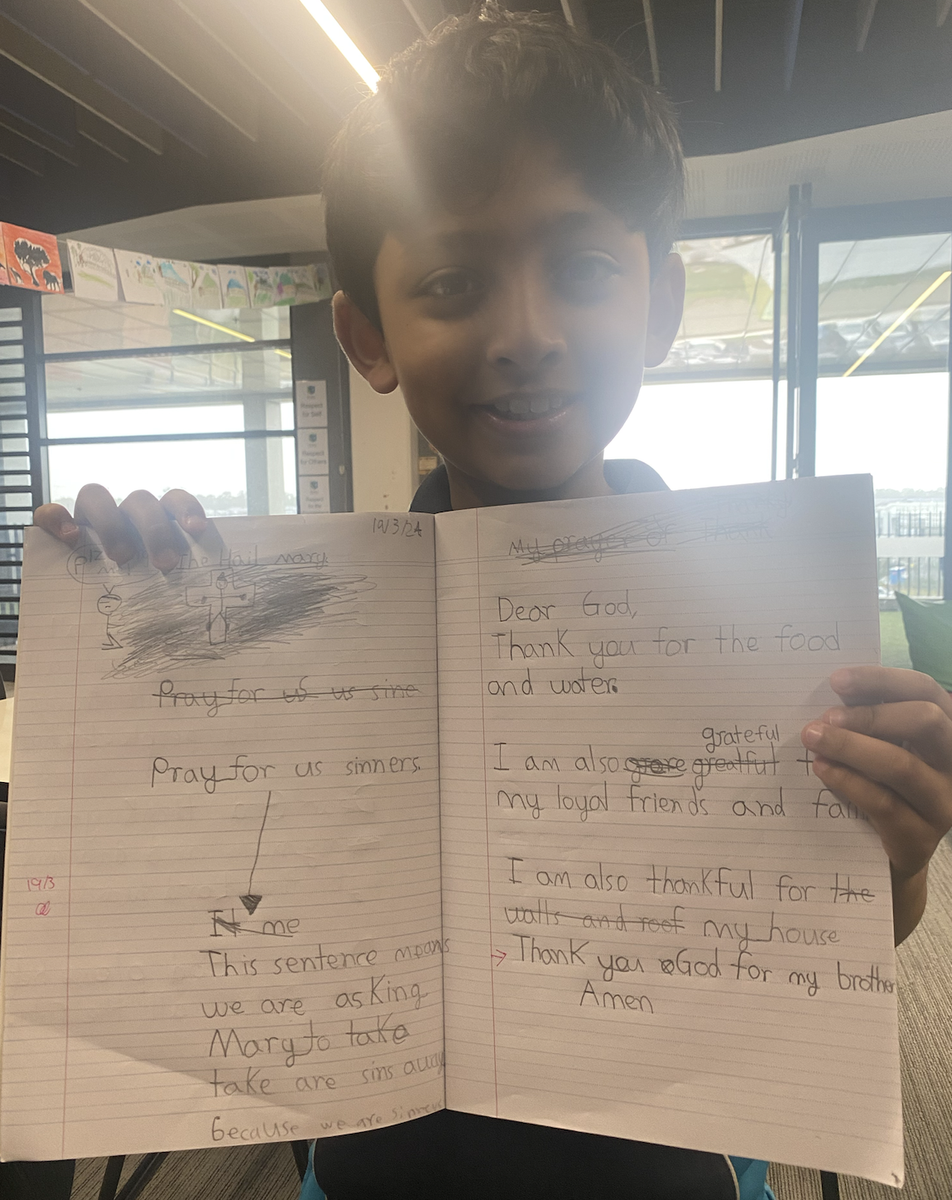 19/3/24
The Hail mary
Pray for us us sine
Pray for us sinners.
19/3
It me
This sentence means
we are asking
Mary to take
take are sins away
because we are sinners
My prayer of thank
Dear God,
Thank you for the food
and water.
grateful
I am also greatful
my loyal friends and fam
I am also thankful for the
walls and roof my house
Thank you God for my brother
Amen
Respect
for Self
Respect
for Others
Respect